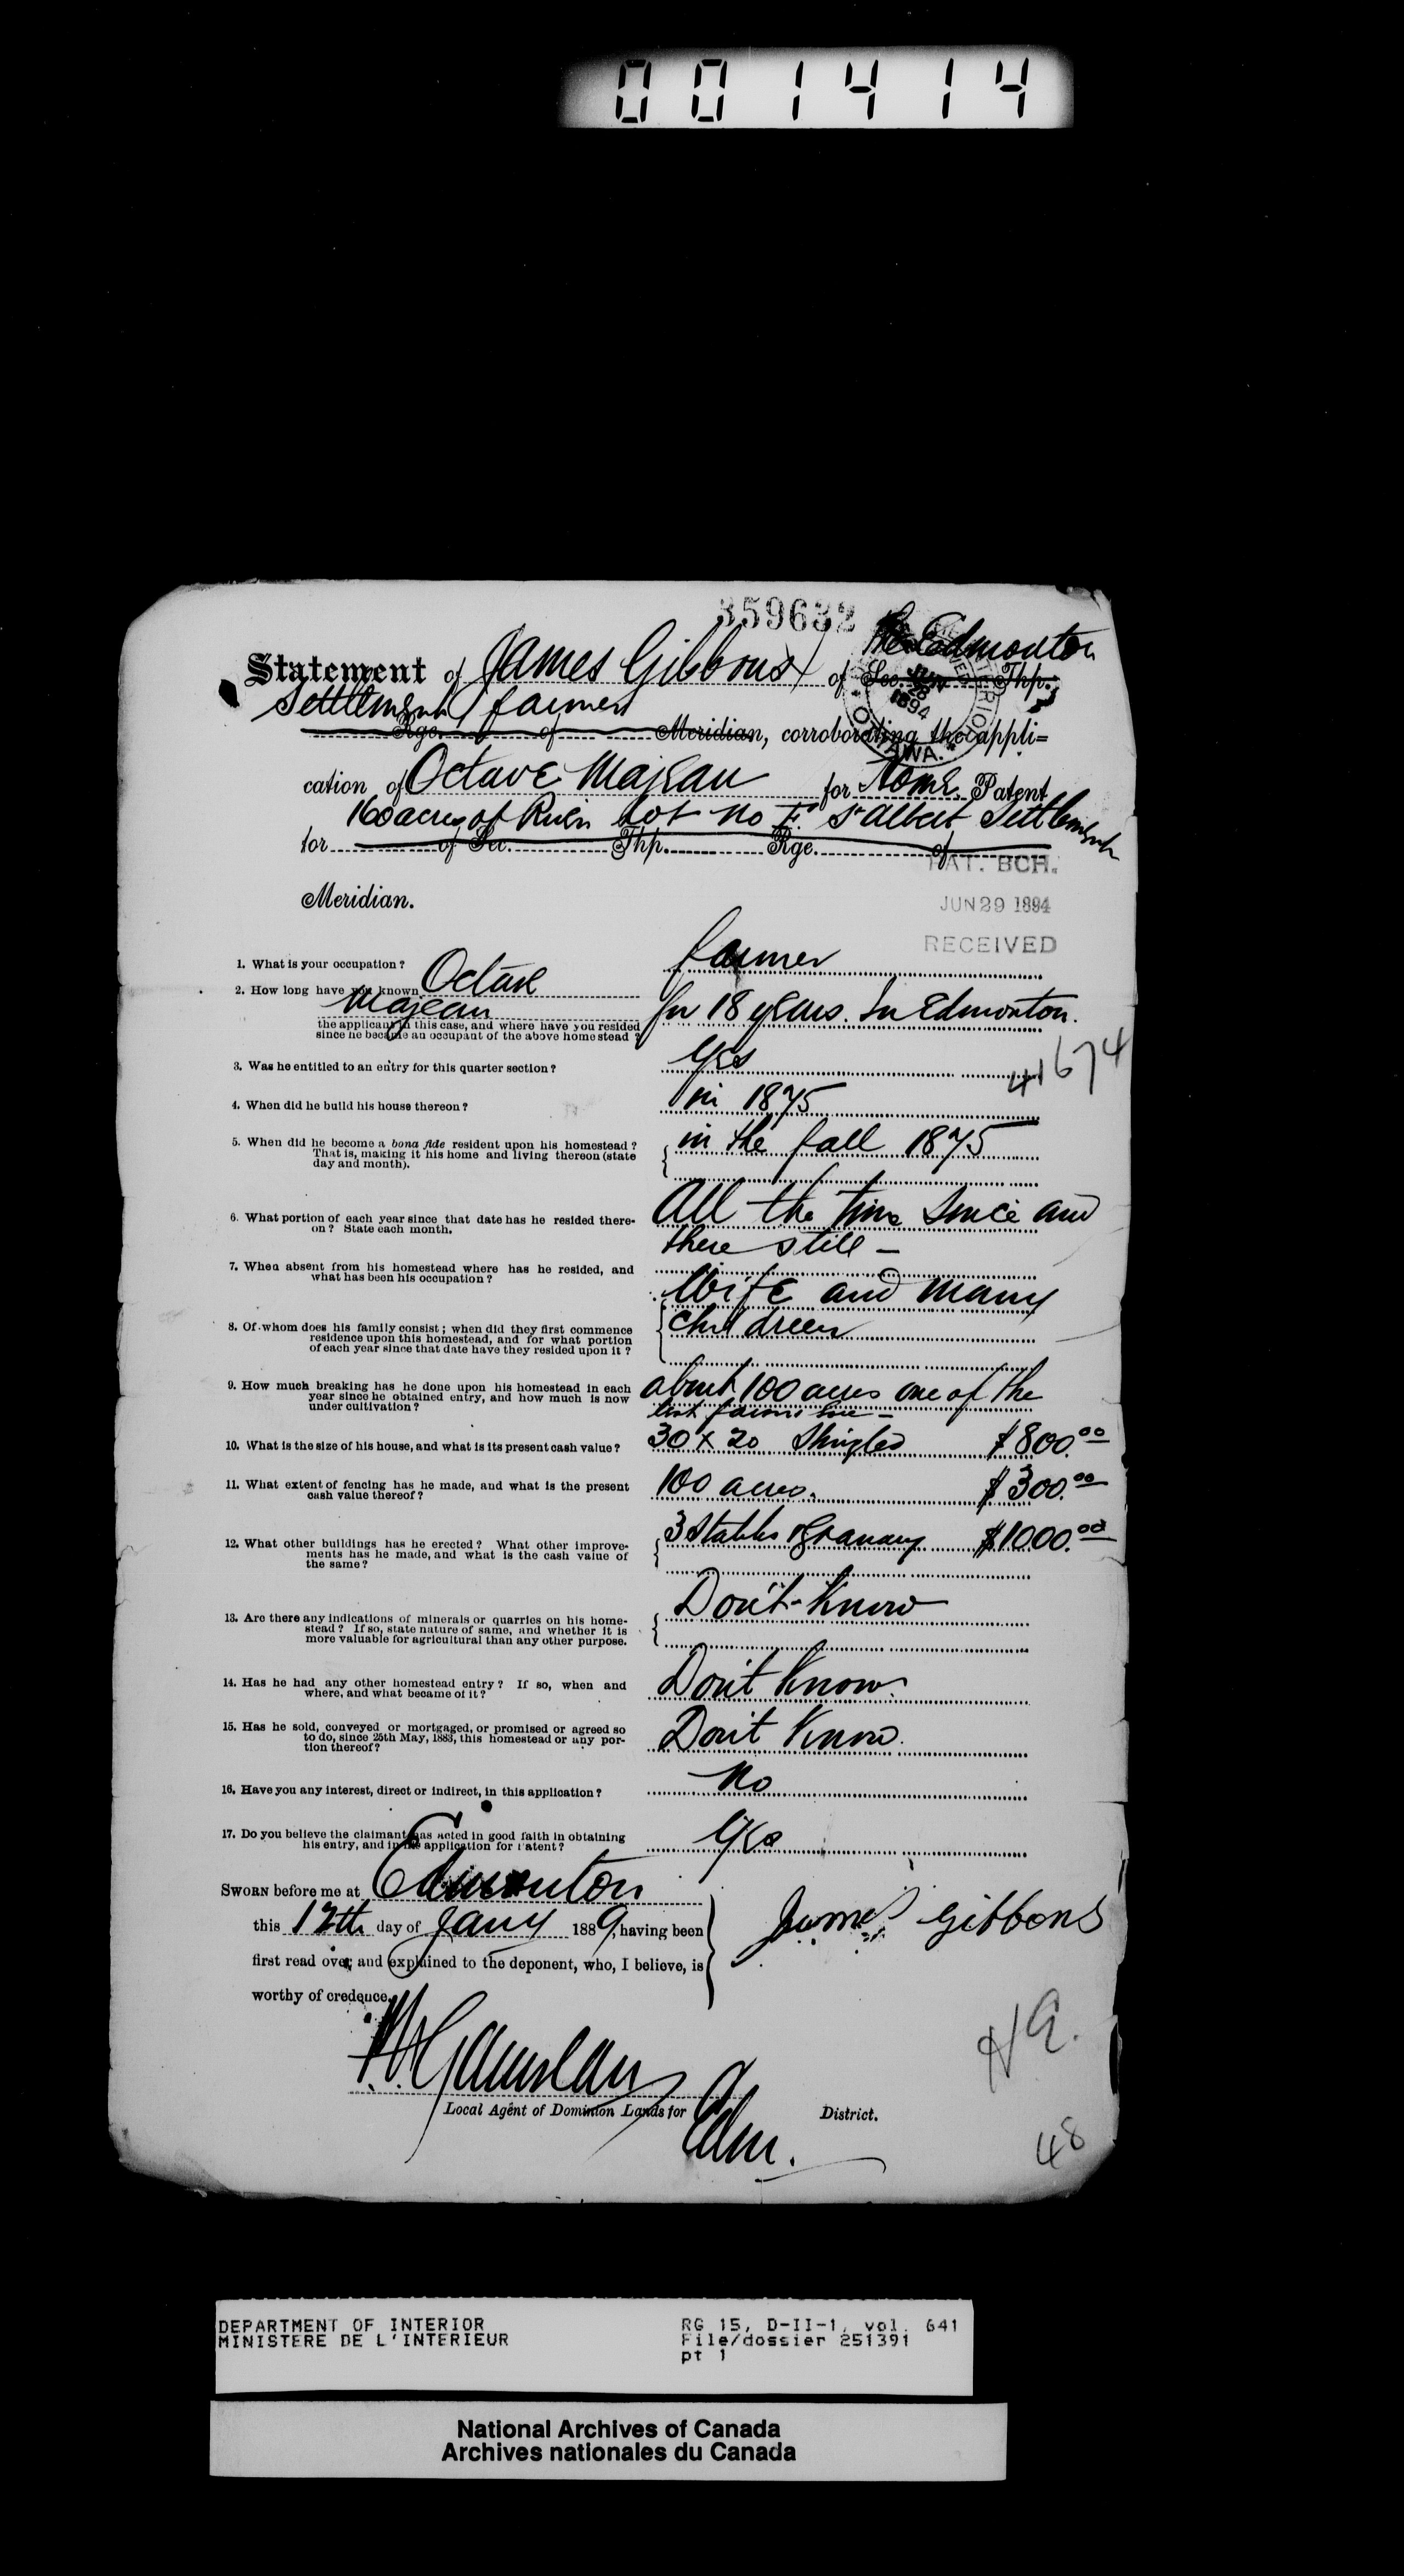 001414
359632
Statement of James Gibbons of Sec. Thp.
the Edmonton
Settlement farmer
JUN 28 1894
OTTAWA.
Rge. of Meridian, corroborating the appli=
cation of Octave Majeau for Home Patent
160 acres of River Lot No F. St Albert Settlement
for of Sec. Thp. Rge. of
PAT. BCH.
Meridian.
JUN 29 1894
RECEIVED
1. What is your occupation? farmer
2. How long have you known Octave
Majeau for 18 years. In Edmonton.
the applicant in this case, and where have you resided
since he became an occupant of the above homestead?
3. Was he entitled to an entry for this quarter section? Yes
41674
4. When did he build his house thereon? in 1875
5. When did he become a bona fide resident upon his homestead? in the fall 1875
That is, making it his home and living thereon (state
day and month).
6. What portion of each year since that date has he resided there- All the time since and
on? State each month. there still —
7. When absent from his homestead where has he resided, and
what has been his occupation?
Wife and many
8. Of whom does his family consist; when did they first commence children
residence upon this homestead, and for what portion
of each year since that date have they resided upon it?
9. How much breaking has he done upon his homestead in each about 100 acres one of the
year since he obtained entry, and how much is now best farms here —
under cultivation?
10. What is the size of his house, and what is its present cash value? 30 x 20 Shingled $800.00
11. What extent of fencing has he made, and what is the present 100 acres. $300.00
cash value thereof?
12. What other buildings has he erected? What other improve- 3 Stables & Granary $1000.00
ments has he made, and what is the cash value of
the same?
13. Are there any indications of minerals or quarries on his home- Don't Know
stead? If so, state nature of same, and whether it is
more valuable for agricultural than any other purpose.
14. Has he had any other homestead entry? If so, when and Don't Know.
where, and what became of it?
15. Has he sold, conveyed or mortgaged, or promised or agreed so Don't Know.
to do, since 25th May, 1883, this homestead or any por-
tion thereof?
16. Have you any interest, direct or indirect, in this application? No
17. Do you believe the claimant has acted in good faith in obtaining Yes
his entry, and in the application for Patent?
SWORN before me at Edmonton
this 12th day of Jany 1889, having been James Gibbons
first read over and explained to the deponent, who, I believe, is
worthy of credence.
Local Agent of Dominion Lands for Edm. District.
48
DEPARTMENT OF INTERIOR RG 15, D-II-1, vol. 641
MINISTERE DE L'INTERIEUR File/dossier 251391
pt 1
National Archives of Canada
Archives nationales du Canada